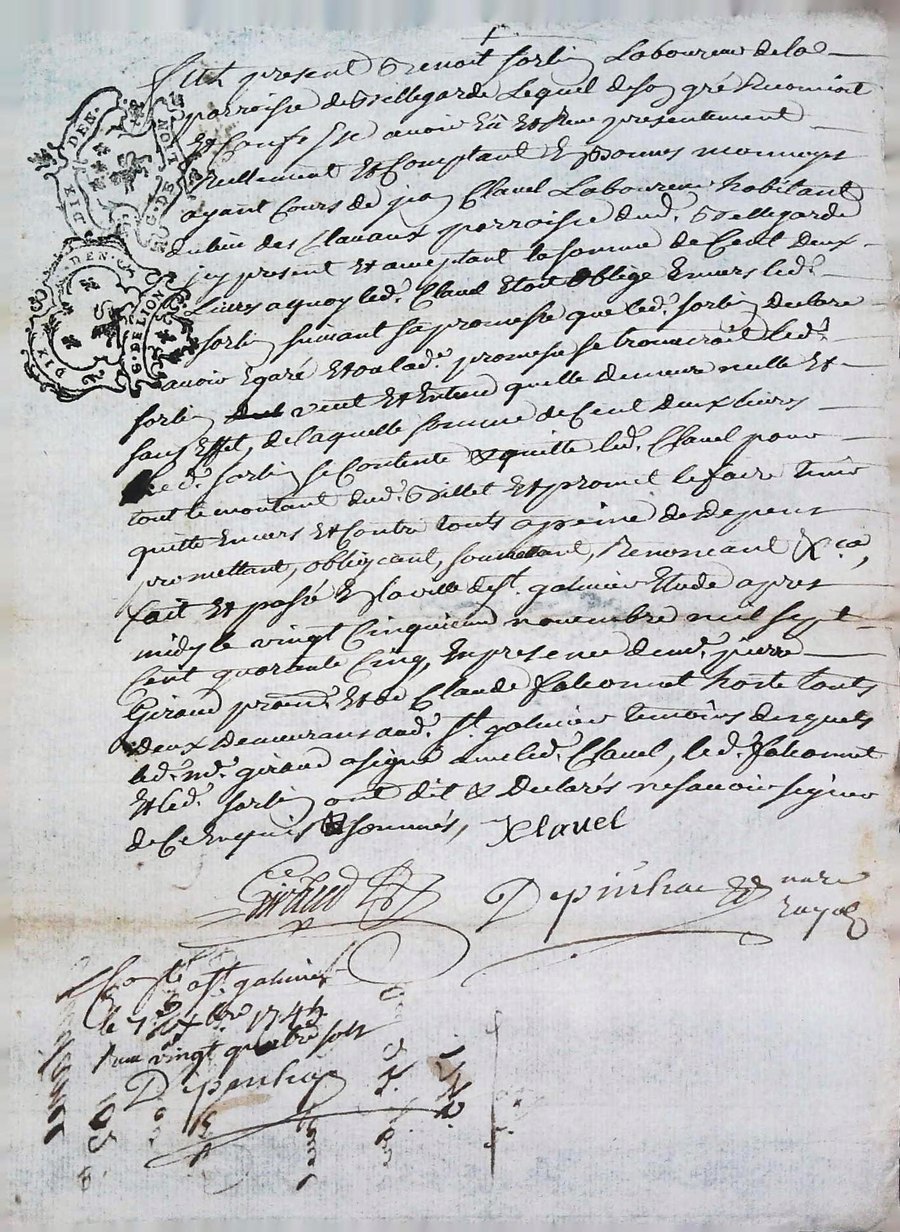 DIX DEN.
G. DE LION
DIX DEN.
G. DE LION
Fut present Benoit Sorbi Laboureur de la
parroisse de Bellegarde Lequel de son gré Reconnoit
Et Confesse avoir Eu Et Receu presentement
Reellement Et Comptant En Bonnes monnoyes
ayant Cours de jean Clavel Laboureur habitant
du lieu des Clavaux parroisse dud. Bellegarde
jcy present Et aceptant la somme de Cent deux
Livres a quoy led. Clavel Etoit Obligé Envers led.
Sorbi suivant sa promesse que led. Sorbi declare
avoir Egaré Et ou lad. promesse se trouveroit led.
Sorbi veut Et Entend quelle demeure nulle Et
sans Effet, de laquelle somme de Cent deux livres
led. Sorbi se Contente & quitte led. Clavel pour
tout le montant dud. Billet Et promet le faire tenir
quitte Envers Et Contre touts a peine de depens
promettant, obligeant, soumettant, Renonceant &ca,
fait Et passé En la ville de St. galmier Etude apres
midy le vingt Cinquieme novembre mil sept
Cent quarante Cinq, En presence de mr. pierre
Giraud pratn. Et de Claude falconnet hoste touts
deux demeurans aud. St. galmier temoins desquels
led. mr. giraud a signé avec led. Clavel, led. falconnet
Et led. Sorbi ont dit & declarés ne savoir signer
de Ce Enquis & sommés, Clavel
Giraud Depinhac nore
royal
Con.lé a St. galmier
le 7 Xbre
Receu vingt quatre sols
Depinhac